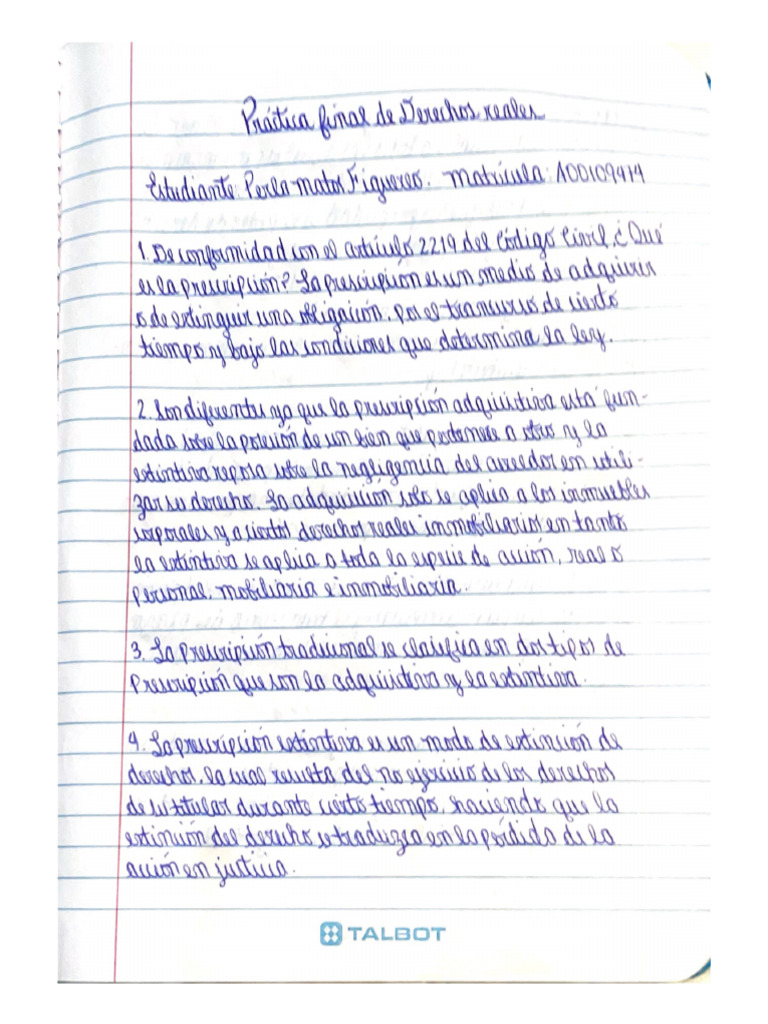 Práctica final de Derechos reales
Estudiante: Perla Matos Figuereo. Matrícula: A00109414
1. De conformidad con el artículo 2219 del Código Civil, ¿Qué
es la prescripción? La prescripción es un medio de adquirir
o de extinguir una obligación, por el transcurso de cierto
tiempo y bajo las condiciones que determina la ley.
2. Son diferentes ya que la prescripción adquisitiva está fun-
dada sobre la posesión de un bien que pertenece a otro y la
extintiva reposa sobre la negligencia del acreedor en utili-
zar su derecho. La adquisición solo se aplica a los inmuebles
corporales y a ciertos derechos reales inmobiliarios en tanto
la extintiva se aplica a toda la especie de acción, real o
personal, mobiliaria e inmobiliaria.
3. La prescripción tradicional se clasifica en dos tipos de
Prescripción que son la adquisitiva y la extintiva.
4. La prescripción extintiva es un modo de extinción de
derechos, la cual resulta del no ejercicio de los derechos
de su titular durante cierto tiempo, haciendo que la
extinción del derecho se traduzca en la pérdida de la
acción en justicia.
TALBOT